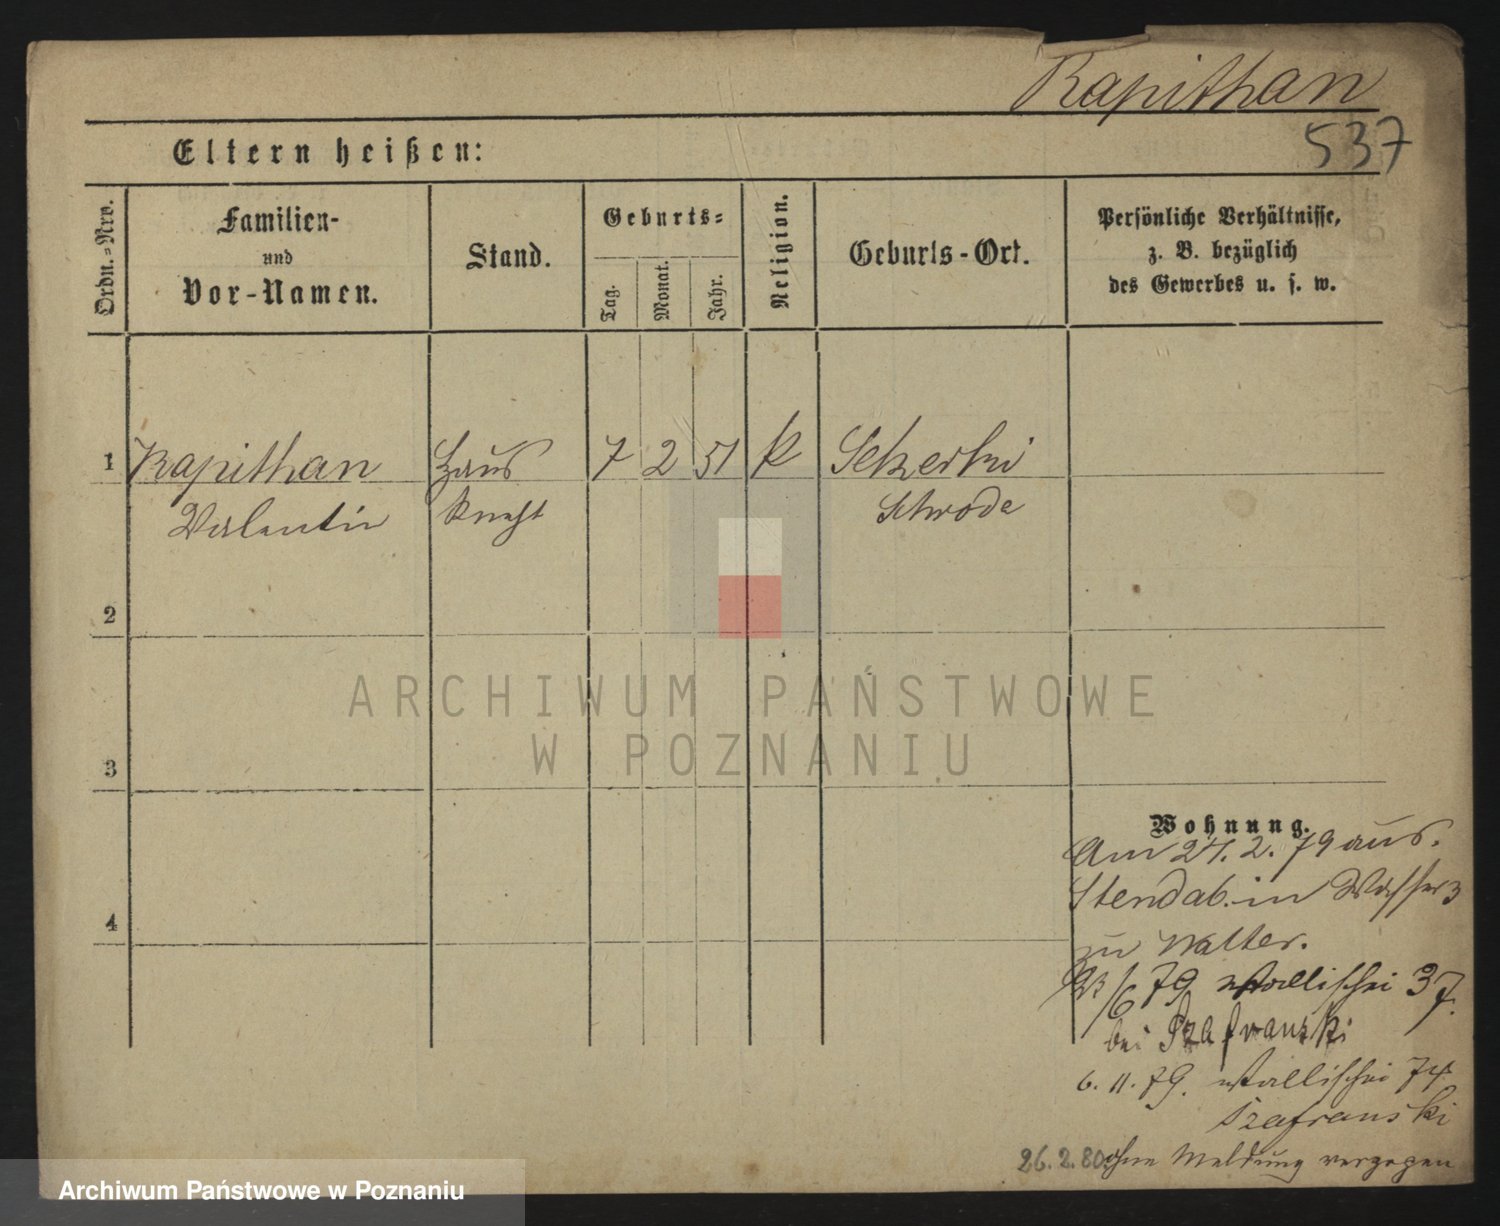 Kapithan
537
Eltern heißen:
Ordn.-Nro.
Familien-
und
Vor-Namen.
Stand.
Geburts-
Tag.
Monat.
Jahr.
Religion.
Geburts-Ort.
Persönliche Verhältnisse,
z. B. bezüglich
des Gewerbes u. s. w.
1
Kapithan Haus 7 2 51 k
Valentin knecht Schroda
2
3
4
Wohnung.
Am 27. 2. 79 aus.
in Wasser 3
zu Walter.
/6 79 Wallischei 37.
bei Szafranski
6. 11. 79. Wallischei 74
Szafranski
26. 2. 80 ohne Meldung verzogen
ARCHIWUM PAŃSTWOWE
W POZNANIU
Archiwum Państwowe w Poznaniu